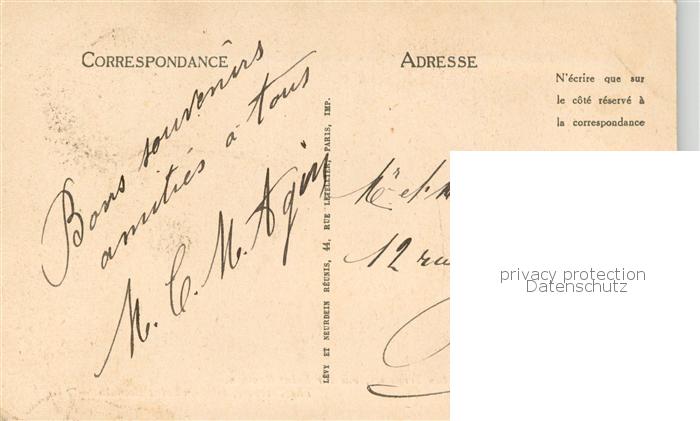 CORRESPONDANCE
Bons souvenirs
amitiés à tous
M. C. M. Agin
LÉVY ET NEURDEIN RÉUNIS, 44, RUE LETELLIER, PARIS, IMP.
ADRESSE
N'écrire que sur
le côté réservé à
la correspondance
12 rue
privacy protection
Datenschutz